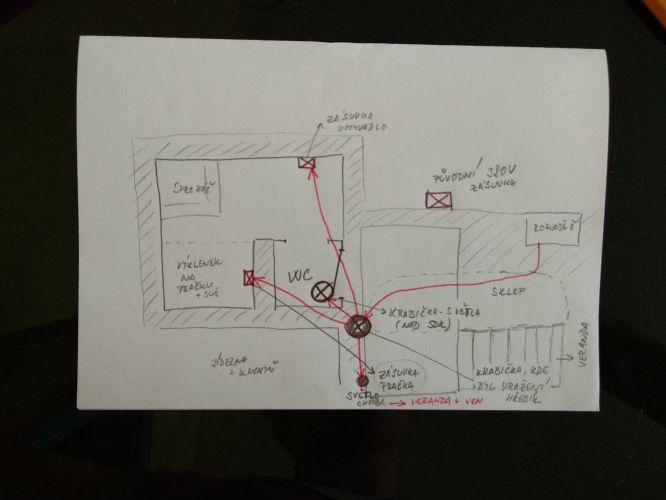 ZÁSUVKA
UMYVADLO
SPRCHÁČ
PŮVODNÍ 380V
ZÁSUVKA
ROZVADĚČ
VÝKLENEK
NA
PRAČKU
+ SUŠ
WC
SKLEP
KRABIČKA - SVĚTLA
(NAD SDK)
VERANDA
JÍDELNA
+ KUCHYŇ
ZÁSUVKA
PRAČKA
KRABIČKA, KDE
BYL VRAŽENÝ
HŘEBÍK
SVĚTLA
CHODBA → VERANDA + VEN